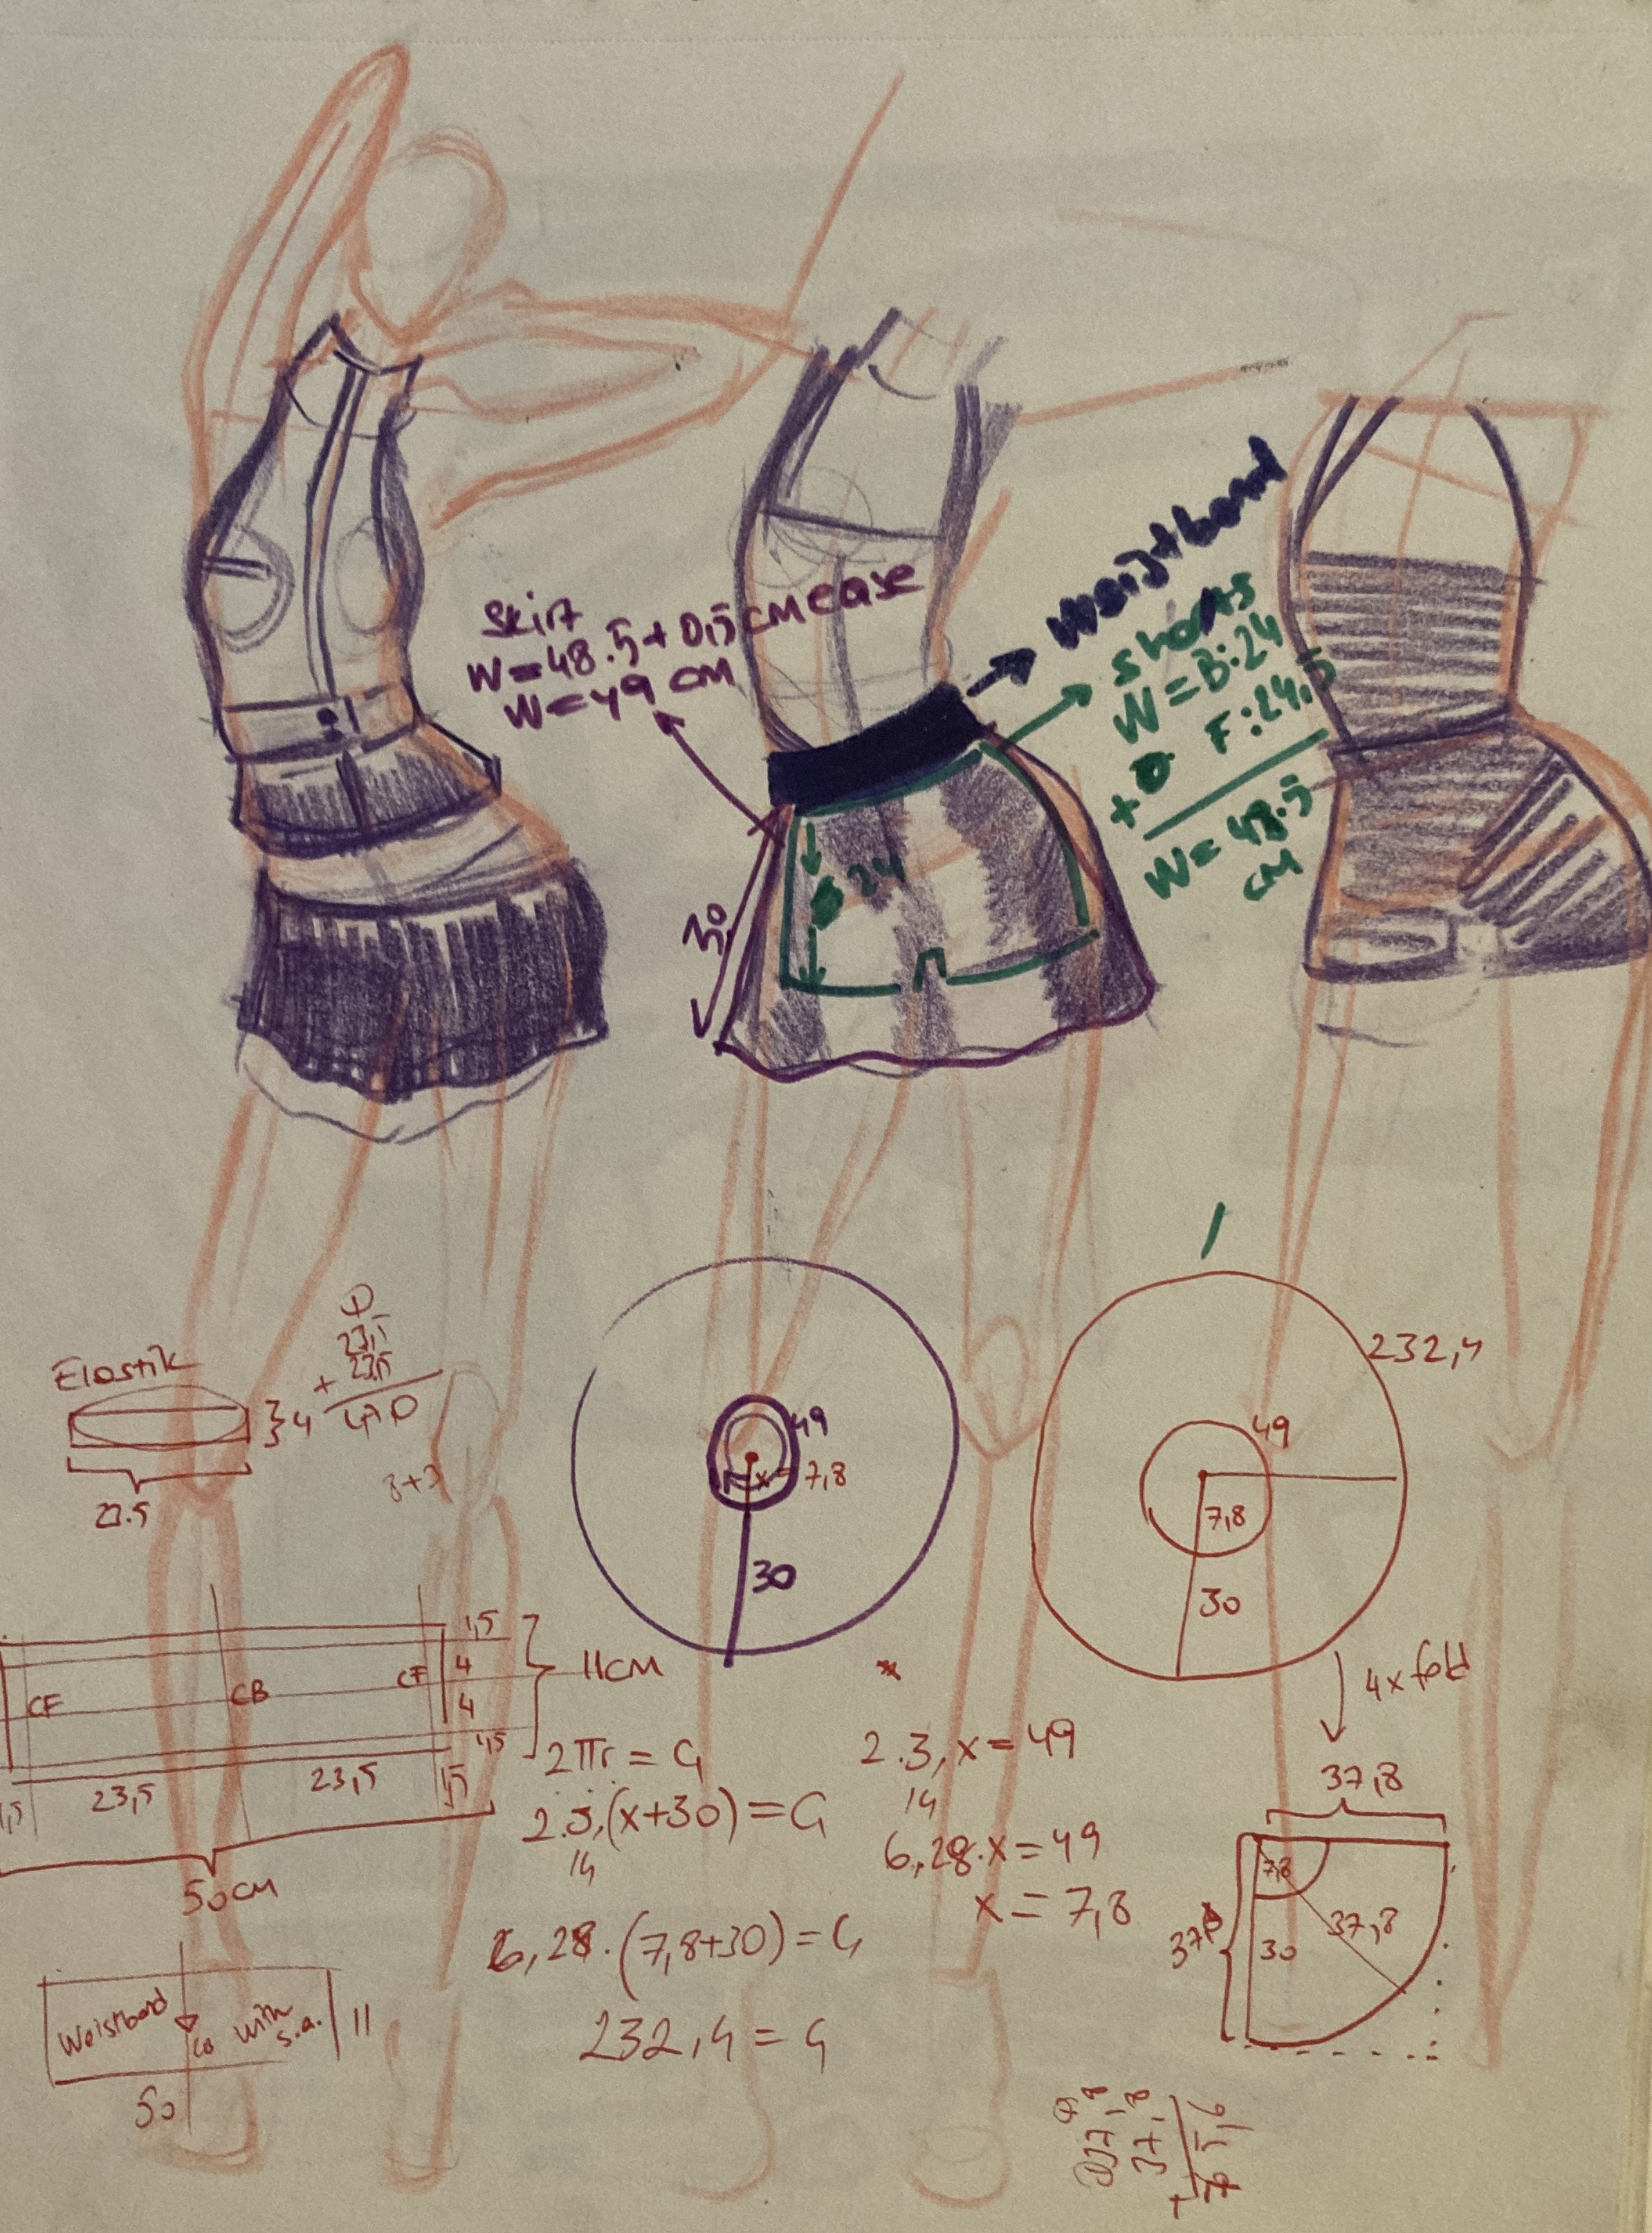 Skirt
W=48.5+0,5 CM ease
W=49 CM
Weistband
shorts
W=B:24
+ F:24,5
W=48.5
CM
24
30
Elastik
}4
23.5
23,5
+ 23,5
47,0
3+3
49
x=7,8
30
232,4
49
7,8
30
4x fold
1,5
4
4
1,5
11CM
CF
CB
CF
1,5
23,5
23,5
1,5
50CM
2πr=Ç
2.3,(x+30)=Ç
14
6,28.(7,8+30)=Ç
232,4=Ç
2.3,x=49
14
6,28.x=49
x=7,8
37,8
7,8
37,8
30
37,8
Weistband
CB
with
s.a.
11
50
37,8
37,8
+
75,6